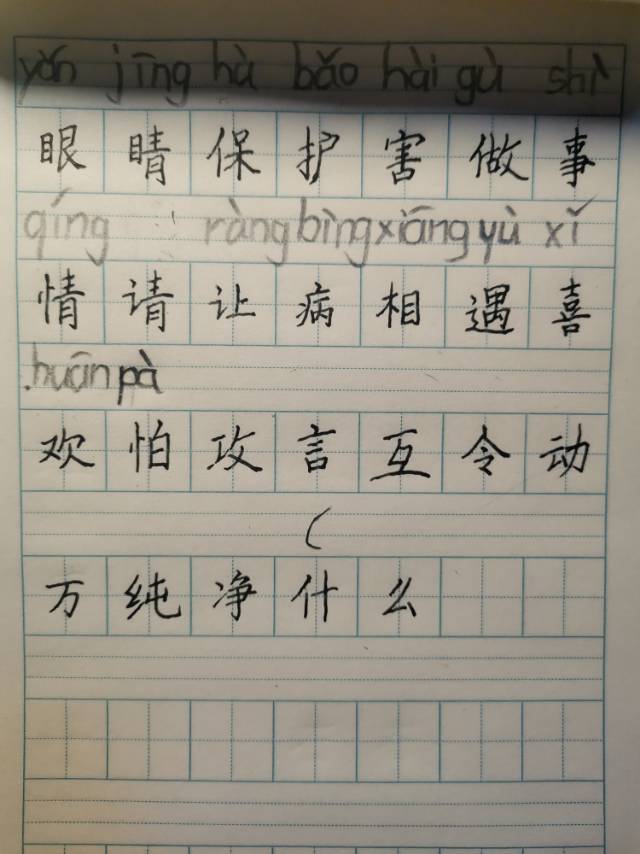 yǎn jīng hù bǎo hài gù shì
眼睛保护害做事
qíng ràng bìng xiāng yù xǐ
情请让病相遇喜
huān pà
欢怕攻言互令动
(
万纯净什么